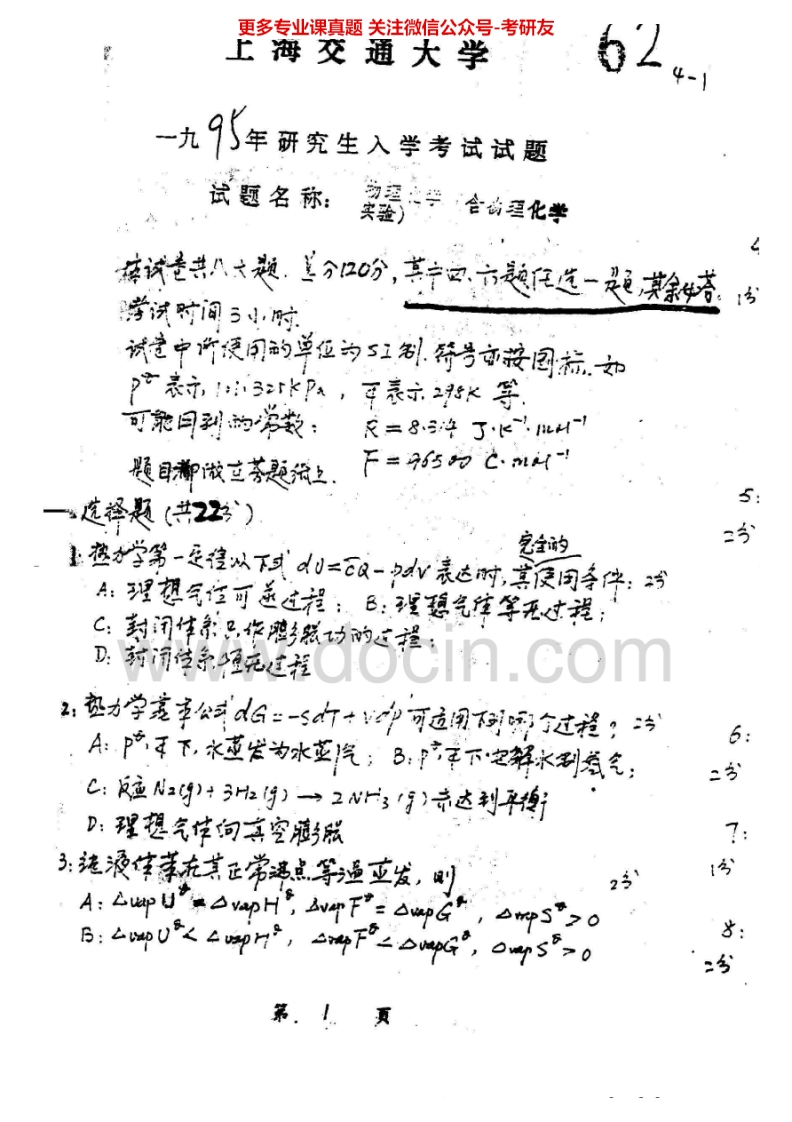 更多专业课真题 关注微信公众号-考研友
上海交通大学
62 4-1
一九95年研究生入学考试试题
试题名称: 物理化学(含物理化学
实验)
该试卷共八大题.总分120分,其中四、六题任选一题,其余必答.
考试时间3小时.
试卷中所使用的单位为SI制.符号亦按国标.如
p⦵表示101.325kPa, 表示298K等.
可能用到的常数: R=8.314 J·K⁻¹·mol⁻¹
F=96500 C·mol⁻¹
题目都做在答题纸上.
一.选择题(共22分)
1.热力学第一定律以下式 dU=đQ-pdV 表达时,其使用条件: 2分
完全的
A: 理想气体可逆过程; B: 理想气体等压过程;
C: 封闭体系只作膨胀功的过程;
D: 封闭体系恒压过程
2: 热力学基本公式 dG=-SdT+Vdp 可适用下列哪个过程? 2分
A: p⦵, 下,水蒸发为水蒸汽; B: p⦵, 下电解水制氢气;
C: 反应N₂(g)+3H₂(g)→2NH₃(g)未达到平衡
D: 理想气体向真空膨胀
3: 纯液体苯在其正常沸点等温蒸发,则 2分
A: ΔvapU⦵=ΔvapH⦵, ΔvapF⦵=ΔvapG⦵, ΔvapS⦵>0
B: ΔvapU⦵<ΔvapH⦵, ΔvapF⦵<ΔvapG⦵, ΔvapS⦵>0
第 1 页
4
1分
5:
二分
6:
二分
7:
1分
8:
二分
www.docin.com